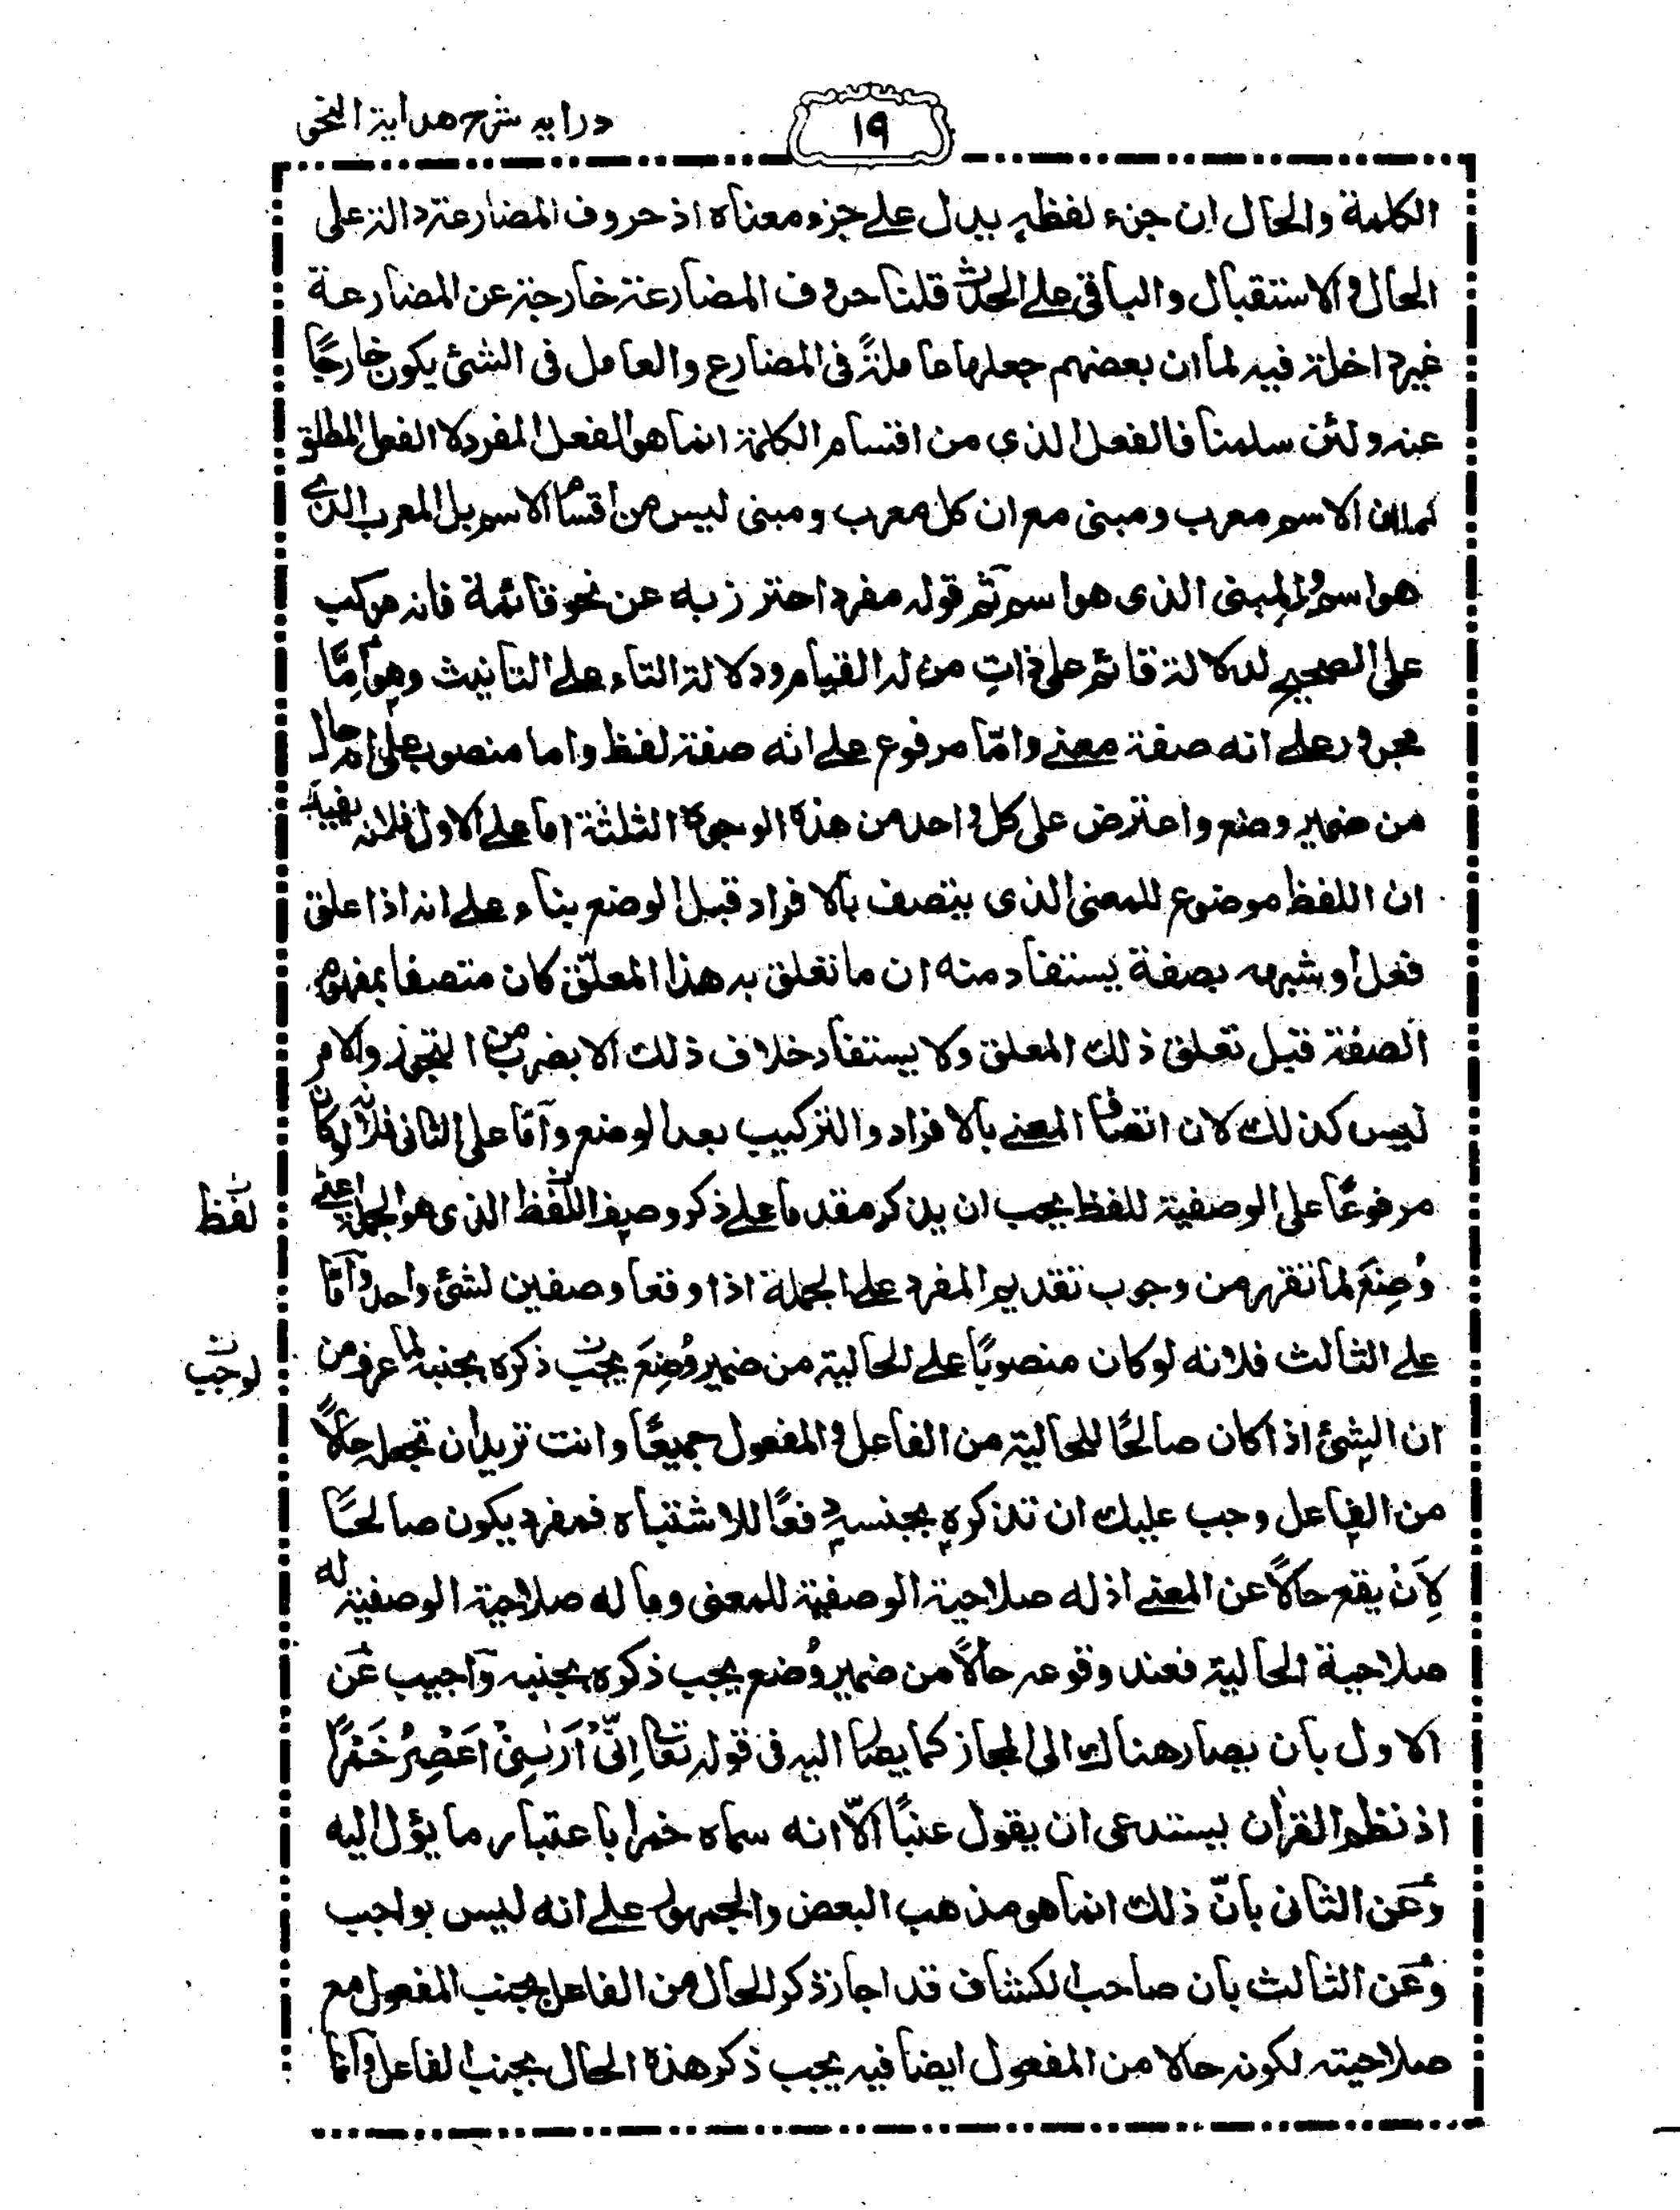 درايه شرح هداية النحو
١٩
الكلمة والحال ان جزء لفظه يدل على جزء معناه اذ حروف المضارعة دالة على
الحال والاستقبال والباقى على الحدث قلنا حروف المضارعة خارجة عن المضارعة
غير داخلة فيه لما ان بعضهم جعلها عاملةً فى المضارع والعامل فى الشئ يكون خارجًا
عنه ولئن سلمنا فالفعل الذى من اقسام الكلمة انما هو الفعل المفرد لا الفعل المطلق
كما ان الاسم معرب ومبنى مع ان كل معرب ومبنى ليس من أقسام الاسم بل المعرب الذى
هو اسم والمبنى الذى هو اسم ثم قوله مفرد احترز به عن نحو قائمة فانه مركب
على الصحيح لدلالة قائم على ذاتٍ من له القيام ودلالة التاء على التانيث وهو اِمَّا
مجرور على انه صفة معنى وامّا مرفوع على انه صفة لفظ واما منصوب على انه حال
من ضمير وضع واعترض على كل واحد من هذه الوجوه الثلثة اما على الاول فلانه يفيد
ان اللفظ موضوع للمعنى الذى يتصف بالافراد قبل الوضع بناء على انه اذا علق
فعل او شبهه بصفة يستفاد منه ان ما تعلق به هذا المعلّق كان متصفا بمفهوم
الصفة قبل تعلق ذلك المعلق ولا يستفاد خلاف ذلك الا بضرب من التجوز والامر
ليس كذلك لان اتصاف المعنى بالافراد والتركيب بعد الوضع وأمّا على الثانى فلانه لو كان
مرفوعًا على الوصفية للفظ يجب ان يذكر مقدما على ذكر وصف اللفظ الذى هو الجملة اعنى
لفظ
وُضِعَ لما تقرر من وجوب تقديم المفرد على الجملة اذا وقعا وصفين لشئ واحد وأمّا
على الثالث فلانه لو كان منصوبًا على الحالية من ضمير وُضِعَ يجب ذكره بجنبه لما عرف من
لوجب
ان الشئ اذا كان صالحًا للحالية من الفاعل والمفعول جميعًا وانت تريد ان تجعله حالًا
من الفاعل وجب عليك ان تذكره بجنسه دفعًا للاشتباه فمفرد يكون صالحًا
لِاَنْ يقع حالًا عن المعنى اذ له صلاحية الوصفية للمعنى وما له صلاحية الوصفية له
صلاحية الحالية فعند وقوعه حالًا من ضمير وُضع يجب ذكره بجنبه وأجيب عَن
الاول بان يصار هناك الى المجاز كما يصار اليه فى قوله تعالى اِنِّىْ اَرٰىنِىْ اَعْصِرُ خَمْرًا
اذ نظم القرأن يستدعى ان يقول عنبًا الّا انه سماه خمرا باعتبار ما يؤل اليه
وعَن الثانى بانّ ذلك انما هو مذهب البعض والجمهور على انه ليس بواجب
وعَن الثالث بان صاحب الكشاف قد اجاز ذكر الحال من الفاعل بجنب المفعول مع
صلاحيته لكونه حالا من المفعول ايضا فيه يجب ذكر هذه الحال بجنب الفاعل وأنما